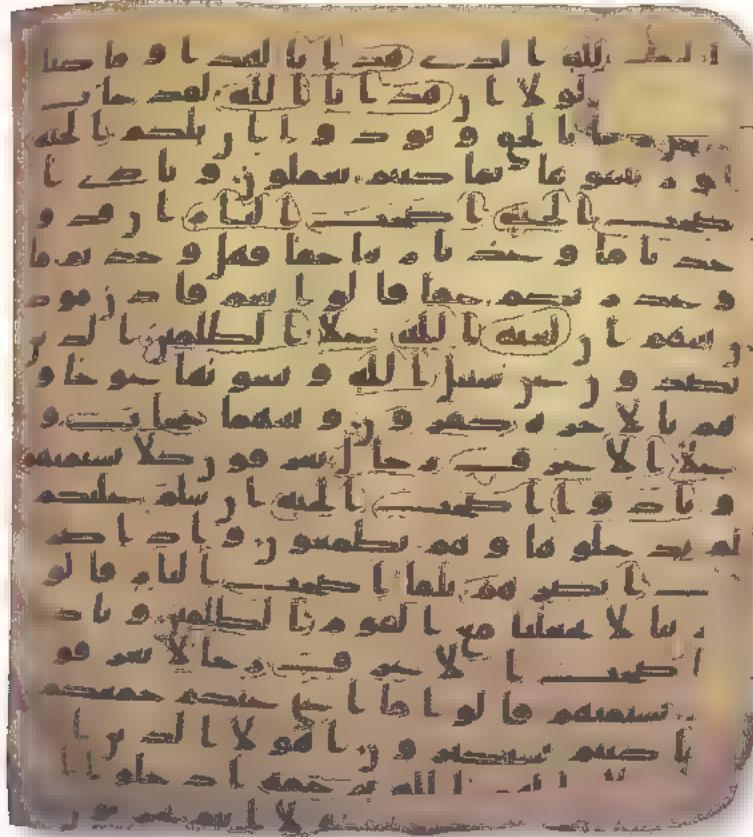 الحمد لله الذي هدانا لهذا وما كنا
لولا ان هدانا الله لقد جات
ربنا بالحق ونودوا ان تلكم الجنة
اورثتموها بما كنتم تعملون ونادى ا
صحب الجنة اصحب النار ان قد و
جدنا ما وعدنا ربنا حقا فهل وجدتم ما
وعد ربكم حقا قالوا نعم فاذن موذن
بينهم ان لعنة الله على الظلمين الذين
يصدون عن سبيل الله ويبغونها عوجا و
هم بالاخرة كفرون وبينهما حجاب و
على الاعراف رجال يعرفون كلا بسيميهم
ونادوا اصحب الجنة ان سلم عليكم
لم يدخلوها وهم يطمعون واذا صر
فت ابصرهم تلقا اصحب النار قالو
ربنا لا تجعلنا مع القوم الظلمين وناد
اصحب الاعراف رجالا يعرفو
بسيميهم قالوا ما اغنى عنكم جمعكم
ما كنتم تستكبرون اهولا الذين ا
الله برحمة ادخلوا ا
ولا انتم تحزنون